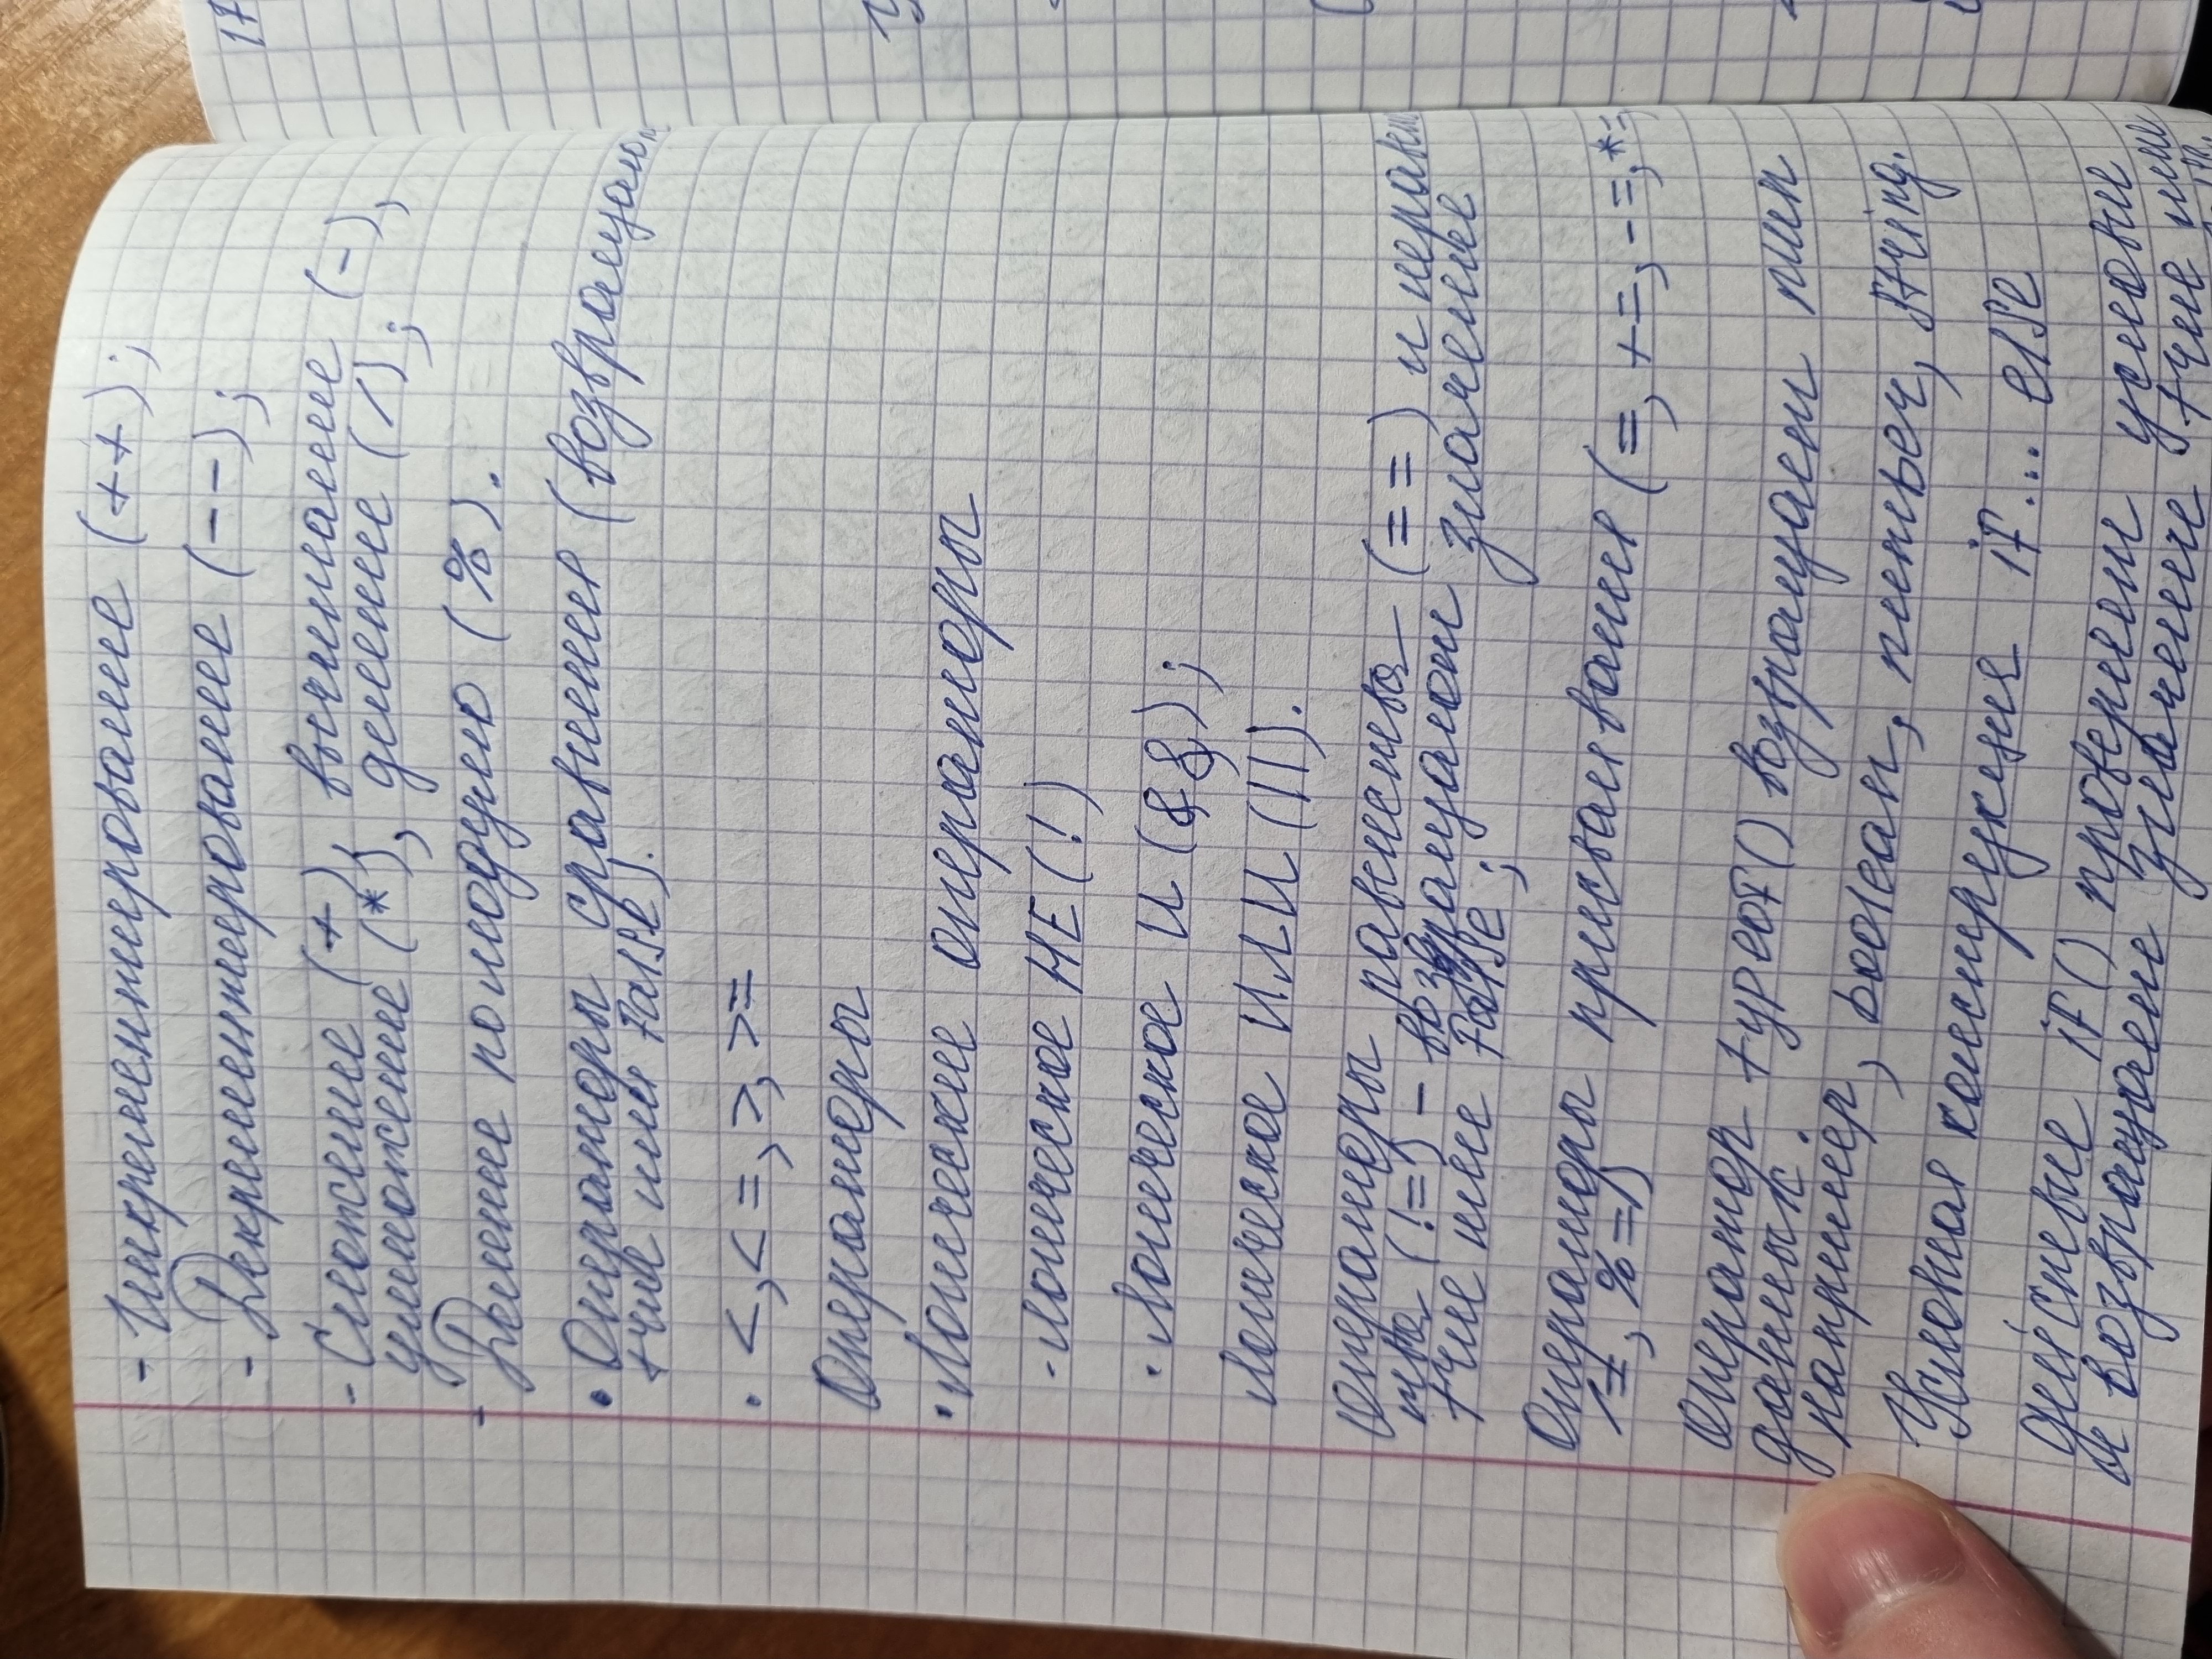 - Инкрементирование (++);
- Декрементирование (--);
- Сложение (+), вычитание (-),
умножение (*), деление (/);
- Деление по модулю (%).
• Операторы сравнения (возвращают
true или False).
• <, <=, >, >=
Операторы
• Логические операторы
- Логическое НЕ (!)
• Логическое И (&&);
Логическое ИЛИ (||).
Операторы равенства (==) и неравенс
тва (!=) – возвращают значение
true или False;
Операторы присваивания (=, +=, -=, *=,
/=, %=)
Оператор typeof() возвращает тип
данных.
например, boolean, number, string.
Условная конструкция if... else
действие if() проверяет условие
и возвращает значение true или